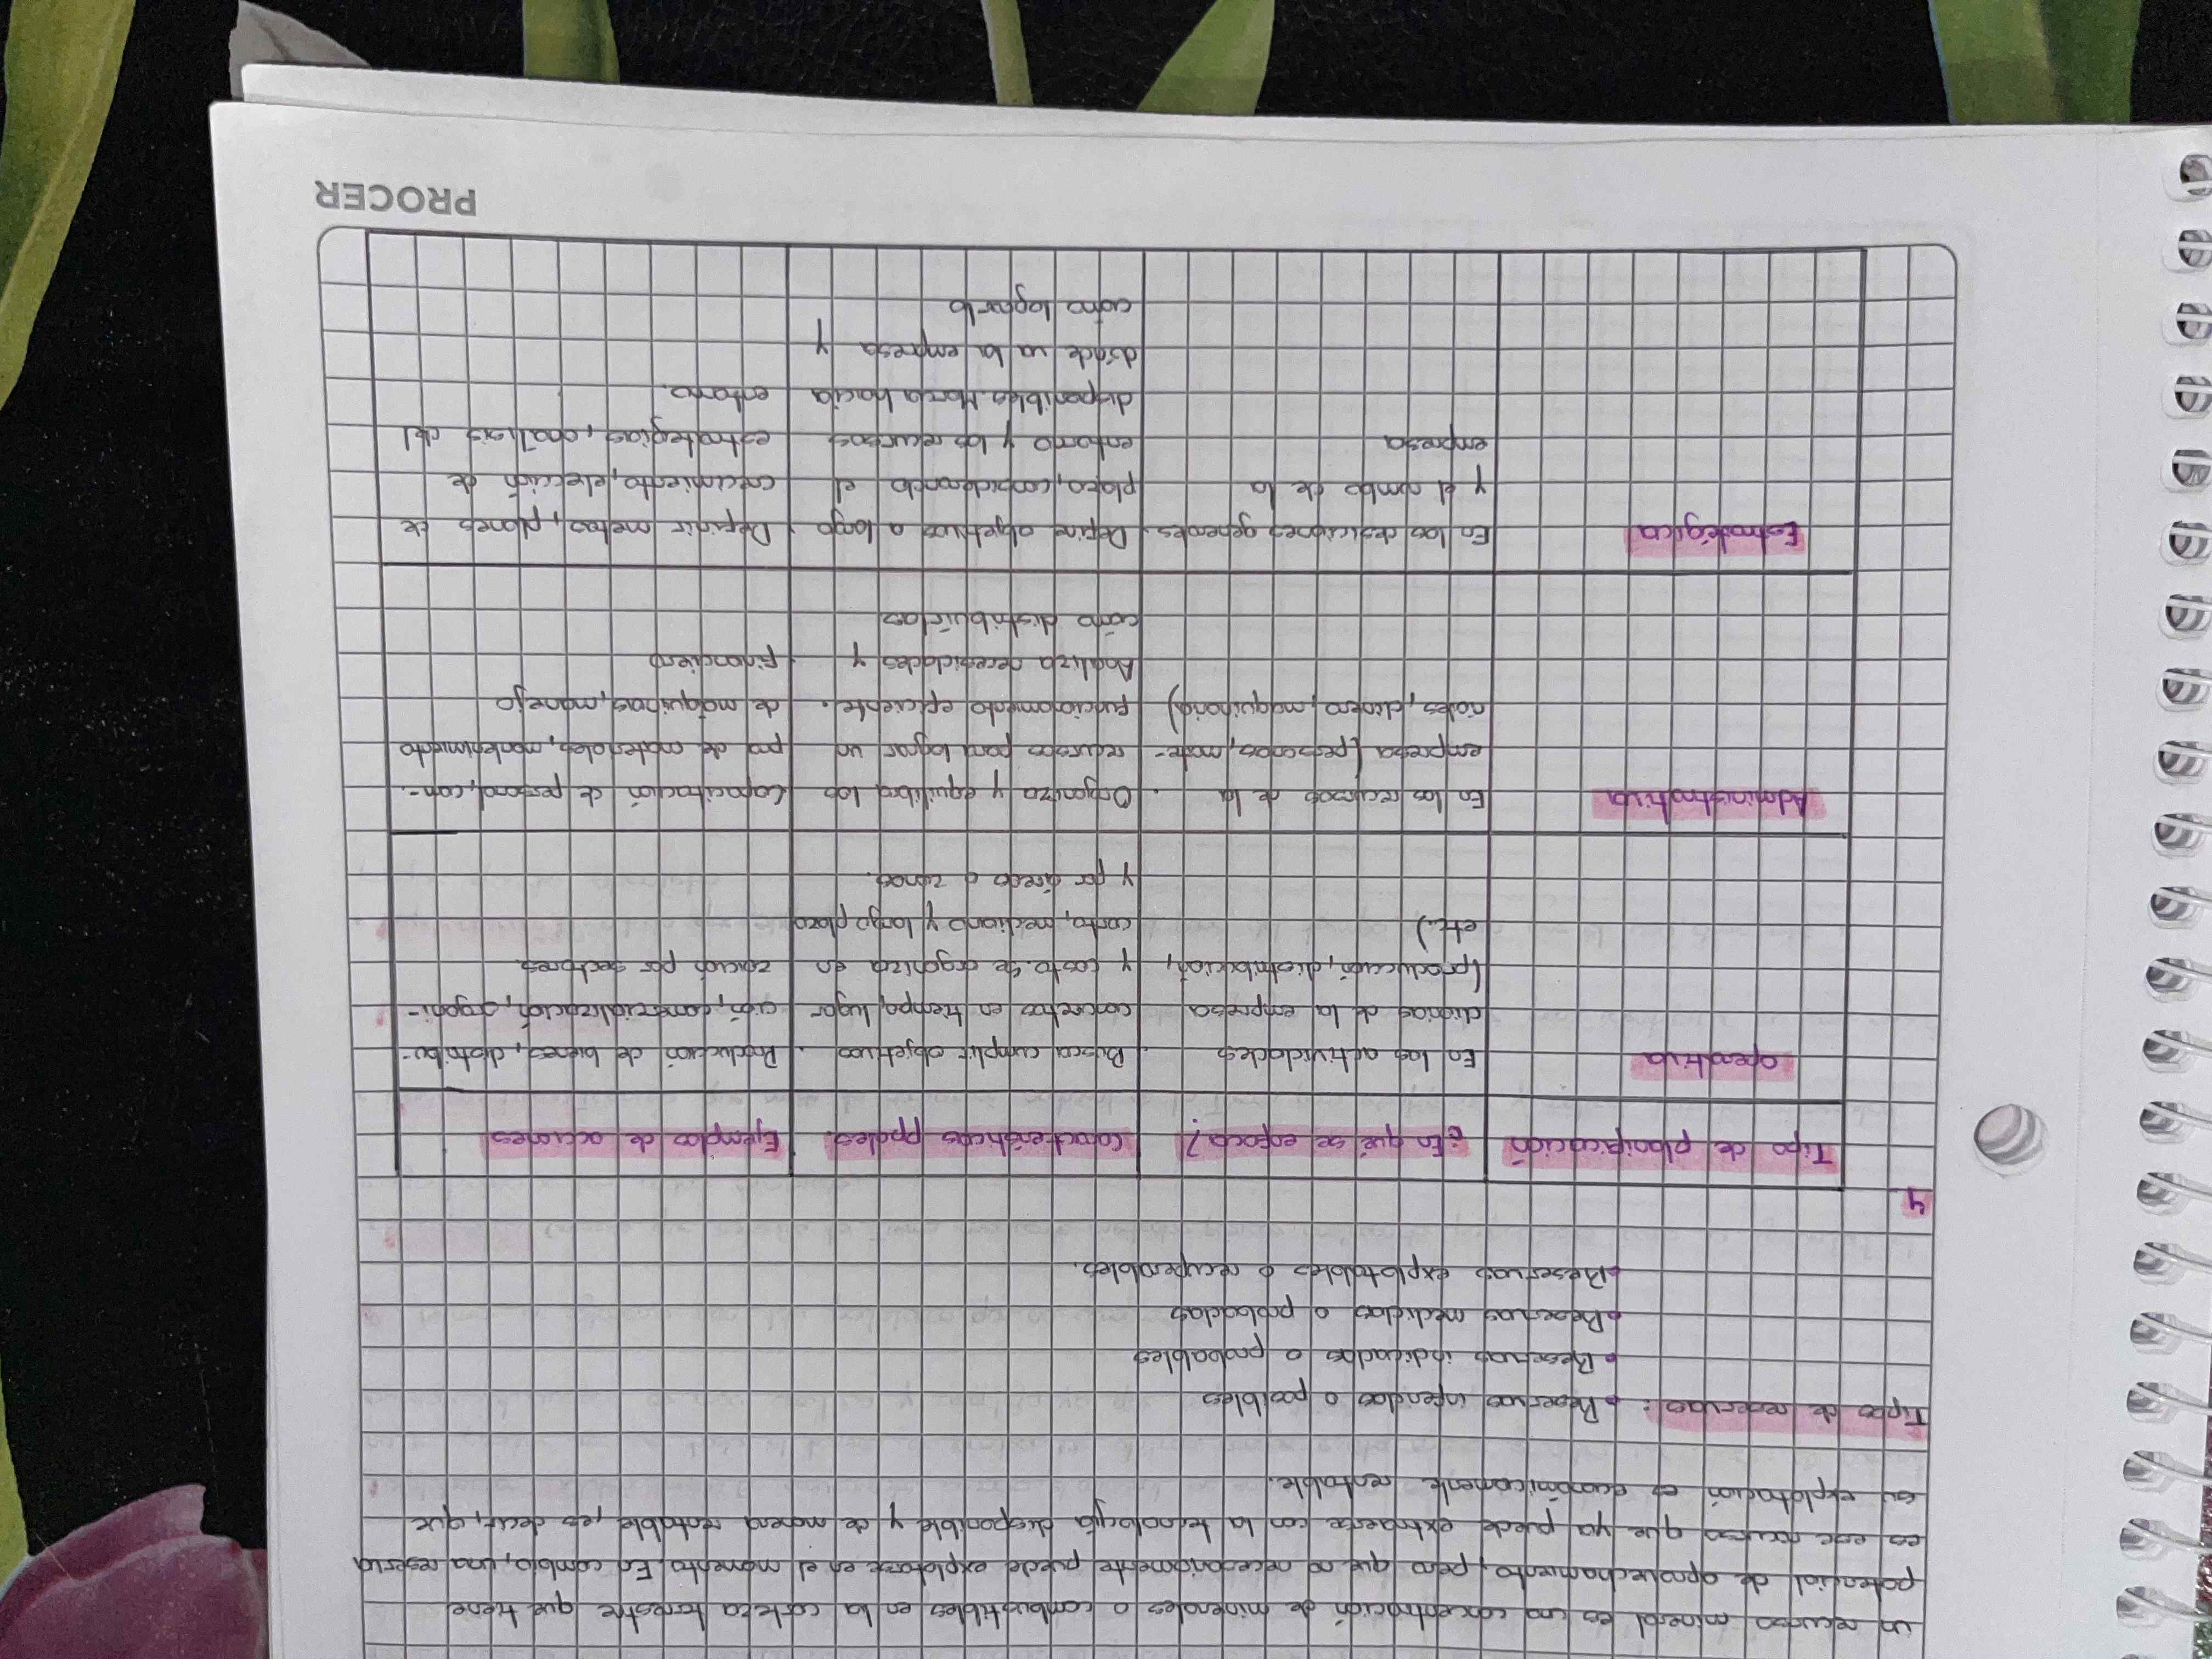 un recurso mineral es una concentración de minerales o combustibles en la corteza terrestre que tiene
potencial de aprovechamiento, pero que no necesariamente puede explotarse en el momento. En cambio, una reserva
es ese recurso que ya puede extraerse con la tecnología disponible y de manera rentable, es decir, que
su explotación es económicamente rentable.
Tipos de reservas: • Reservas inferidas o posibles
• Reservas indicadas o probables
• Reservas medidas o probadas
• Reservas explotables o recuperables.
4
Tipo de planificación ¿En qué se enfoca? Características pples. Ejemplos de acciones
operativa En las actividades . Busca cumplir objetivos . Producción de bienes, distribu-
diarias de la empresa concretos en tiempo, lugar ción, comercialización, organi-
(producción, distribución, y costo. Se organiza en zación por sectores.
etc.) corto, mediano y largo plazo
y por áreas o zonas.
Administrativa En los recursos de la . Organiza y equilibra los Capacitación de personal, com-
empresa (personas, mate- recursos para lograr un pra de materiales, mantenimiento
riales, dinero, maquinaria) funcionamiento eficiente. de máquinas, manejo
Analiza necesidades y financiero
cómo distribuirlas
Estratégica En las desiciones generales. Define objetivos a largo . Definir metas, planes de
y el rumbo de la plazo, considerando el crecimiento, elección de
empresa entorno y los recursos estrategias, análisis del
disponibles. Marca hacia entorno.
dónde va la empresa y
cómo lograrlo
PROCER